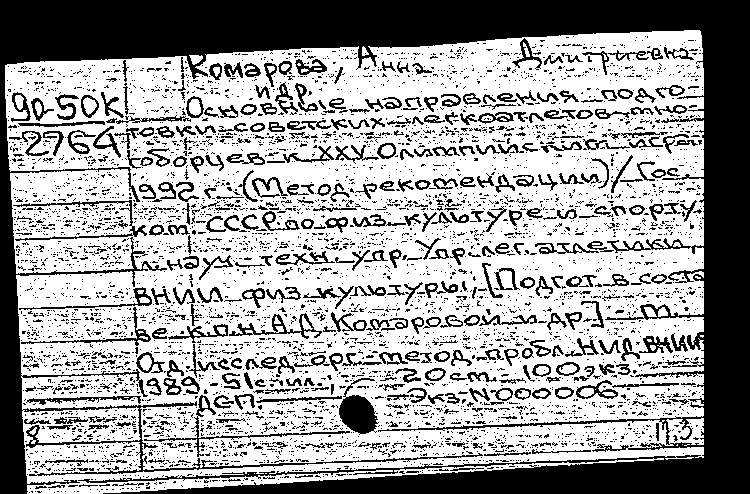 Комарова, Анна Дмитриевна
и др.
90-50К
2764
Основные направления подго-
товки советских легкоатлетов-мно-
гоборцев к XXV Олимпийским играм
1992 г.: (Метод. рекомендации) / Гос.
ком. СССР по физ. культуре и спорту.
Гл. науч.-техн. упр. Упр. лег. атлетики,
ВНИИ физ. культуры; [Подгот. в соста
ве к.п.н. А.Д. Комаровой и др.] - М.:
Отд. исслед. орг.-метод. пробл. НИД ВНИИФК
1989. - 51с.: ил.; 20 см. 100 экз.
ДСП. Экз. N000006.
8 П.З